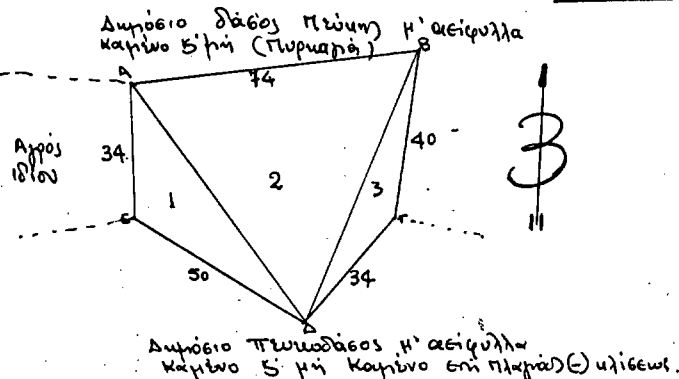 Δημόσιο δάσος πεύκης μ' αείφυλλα
καμένο ξ' μή (Πυρκαγιά)
A
B
74
34
40
Αγρός
ιδίου
1
2
3
Ε
Γ
50
34
Δ
Δημόσιο Πευκοδάσος μ' αείφυλλα
καμένο ξ' μή καμένο επί πλαγιάς (-) κλίσεως.